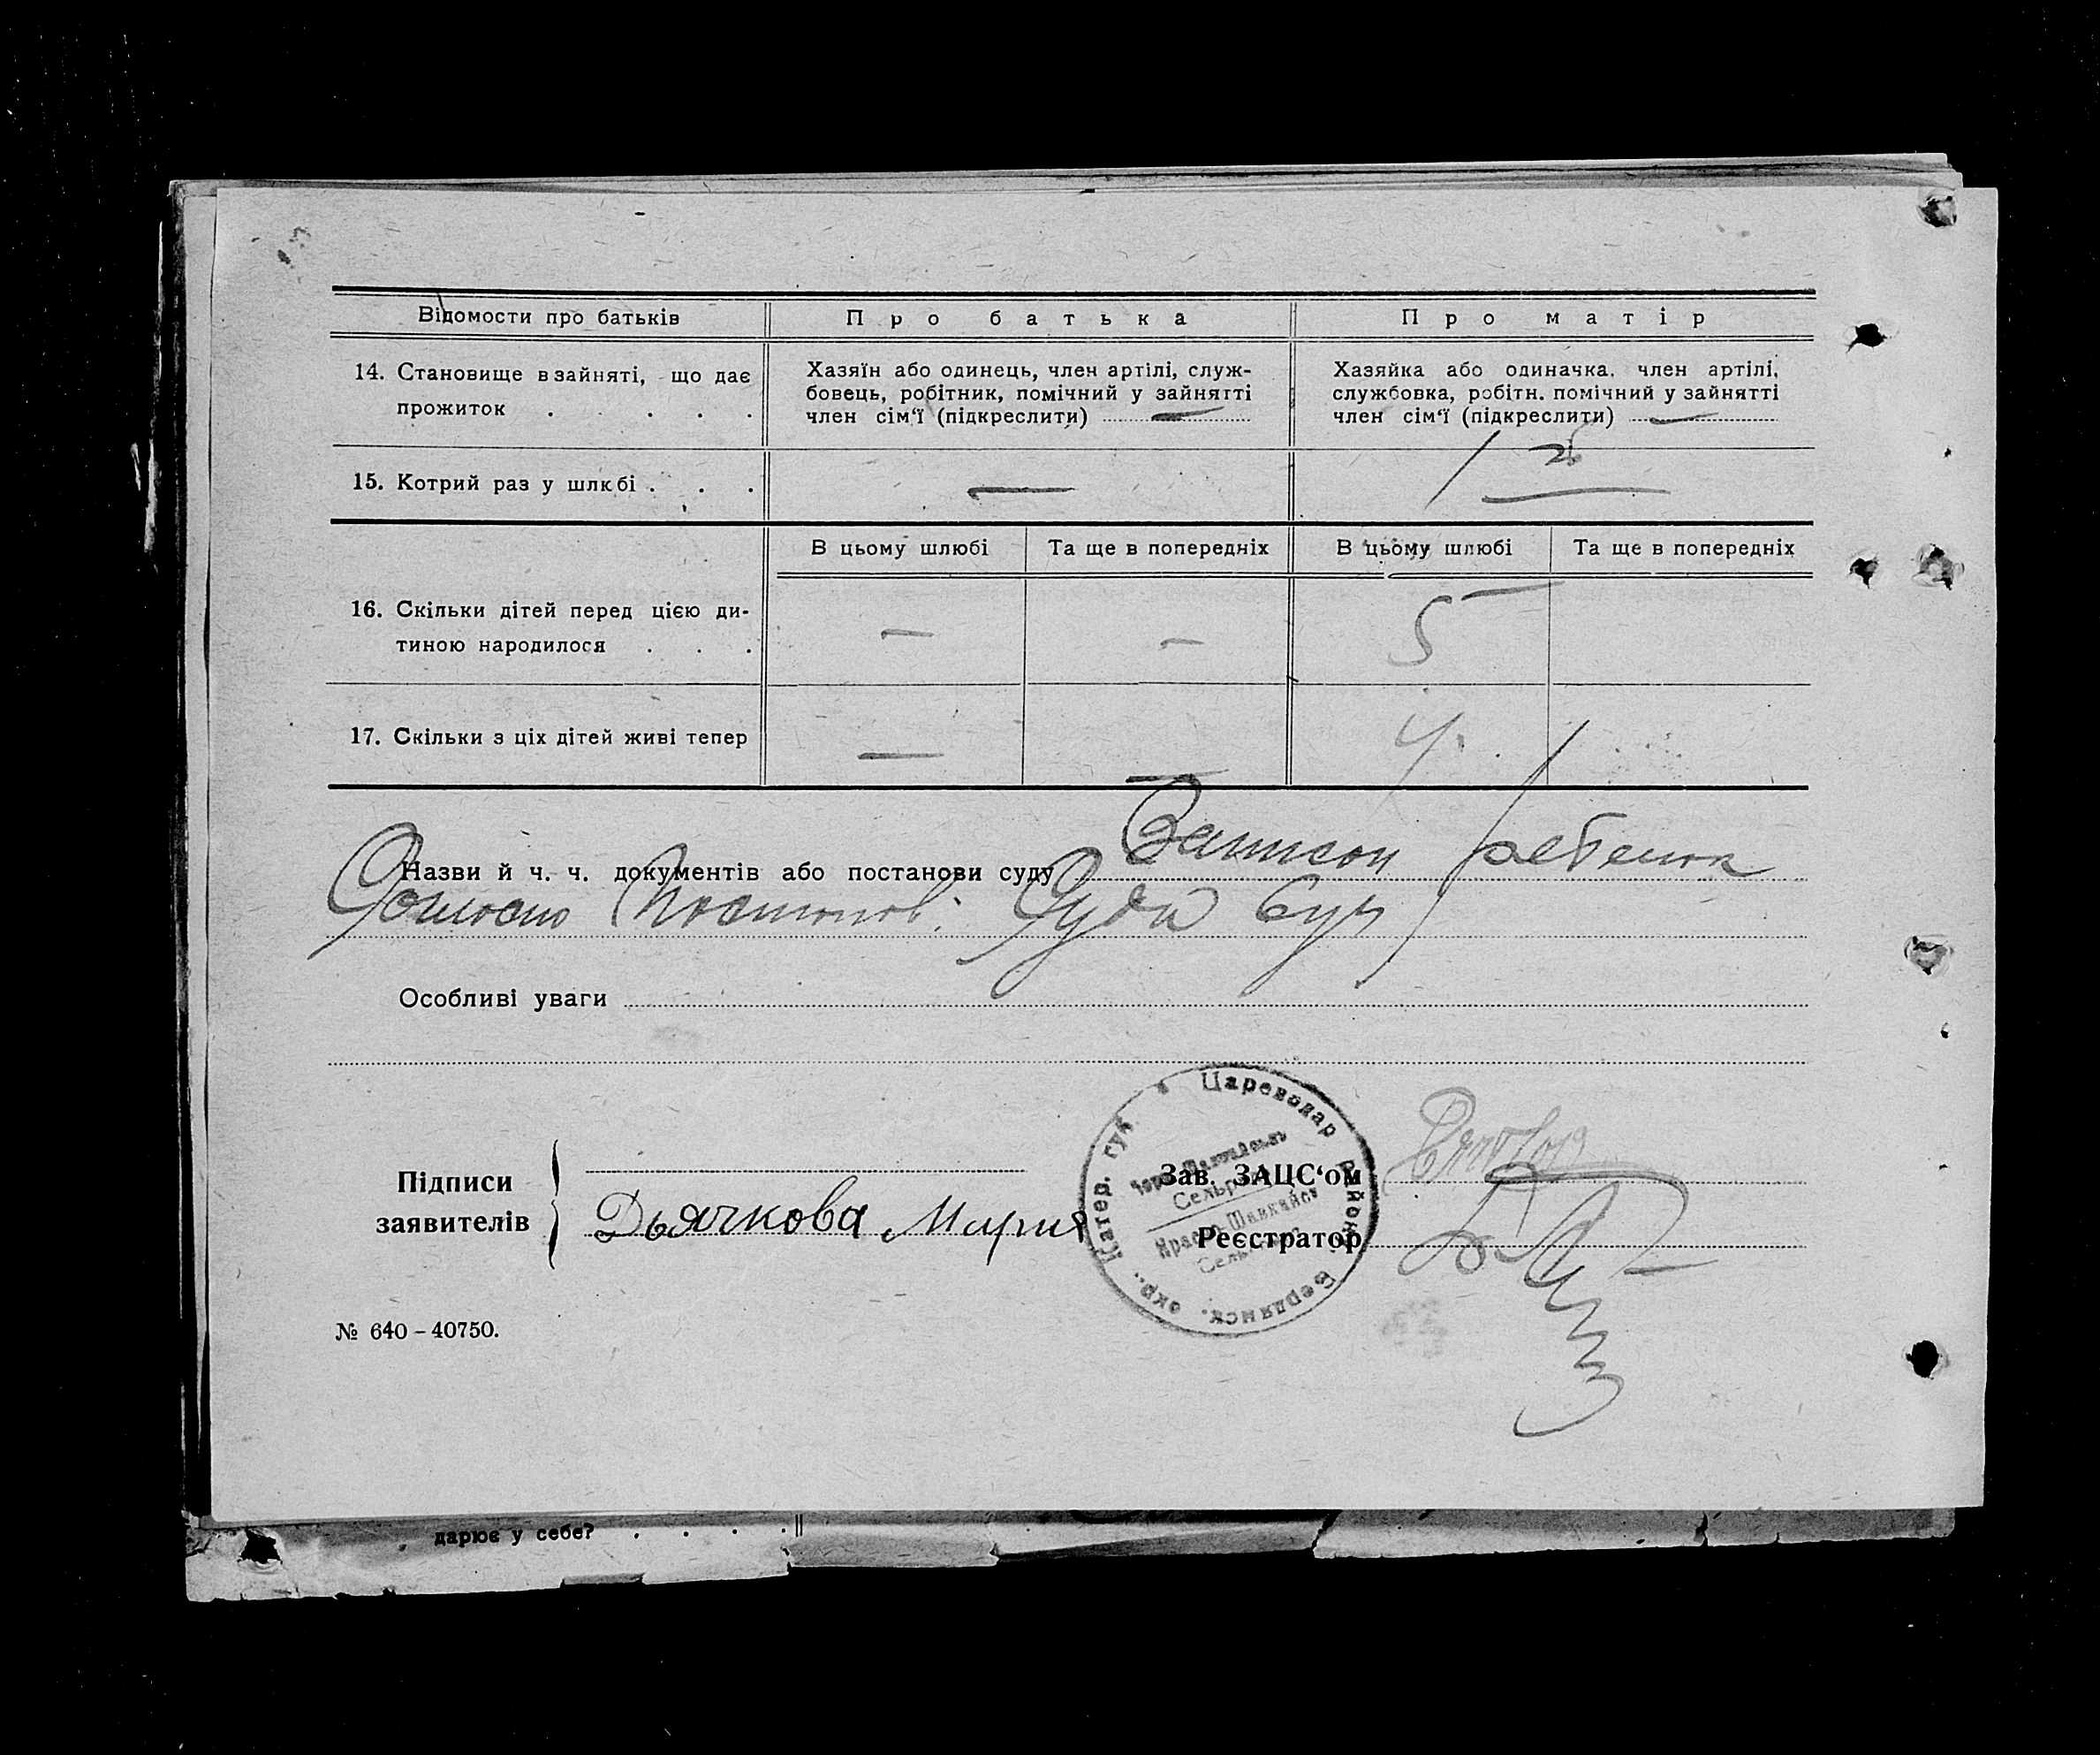 Відомости про батьків
Про батька
Про матір
14. Становище в зайняті, що дає
прожиток . . . . .
Хазяїн або одинець, член артілі, служ-
бовець, робітник, помічний у зайнятті
член сім‘ї (підкреслити) —
Хазяйка або одиначка. член артілі,
службовка, робітн. помічний у зайнятті
член сім‘ї (підкреслити) —
15. Котрий раз у шлюбі . . .
—
В цьому шлюбі
Та ще в попередніх
В цьому шлюбі
Та ще в попередніх
16. Скільки дітей перед цією ди-
тиною народилося . . .
— — 5
17. Скільки з ціх дітей живі тепер
— — 4
Назви й ч. ч. документів або постанови суду Записан ребенок
Согласно Постанов. Суда
Особливі уваги
Підписи
заявителів
Дьячкова Мария
Зав. ЗАЦС‘ом
Реєстратор
Цареводар район. Бердянск. окр., Катер. губ.
Сельр
Сель
№ 640 – 40750.
дарює у себе? . . . .